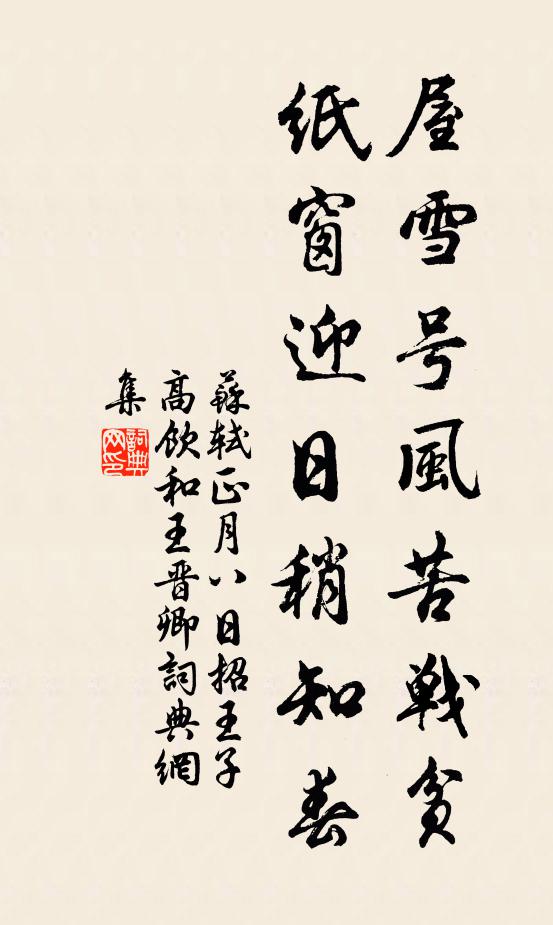 屋雪号風苦戦貧
紙窗迎日稍知春
蘇軾正月八日招王子
高飲和王晋卿詞典網
集
詞典網印